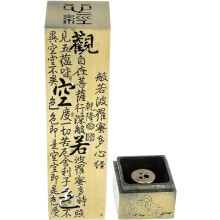 般若波羅蜜多心經
觀自在菩薩行深般若波羅蜜多時照
見五蘊皆空度一切苦厄舍利子色
異空空不異色色即是空空即是
乾隆